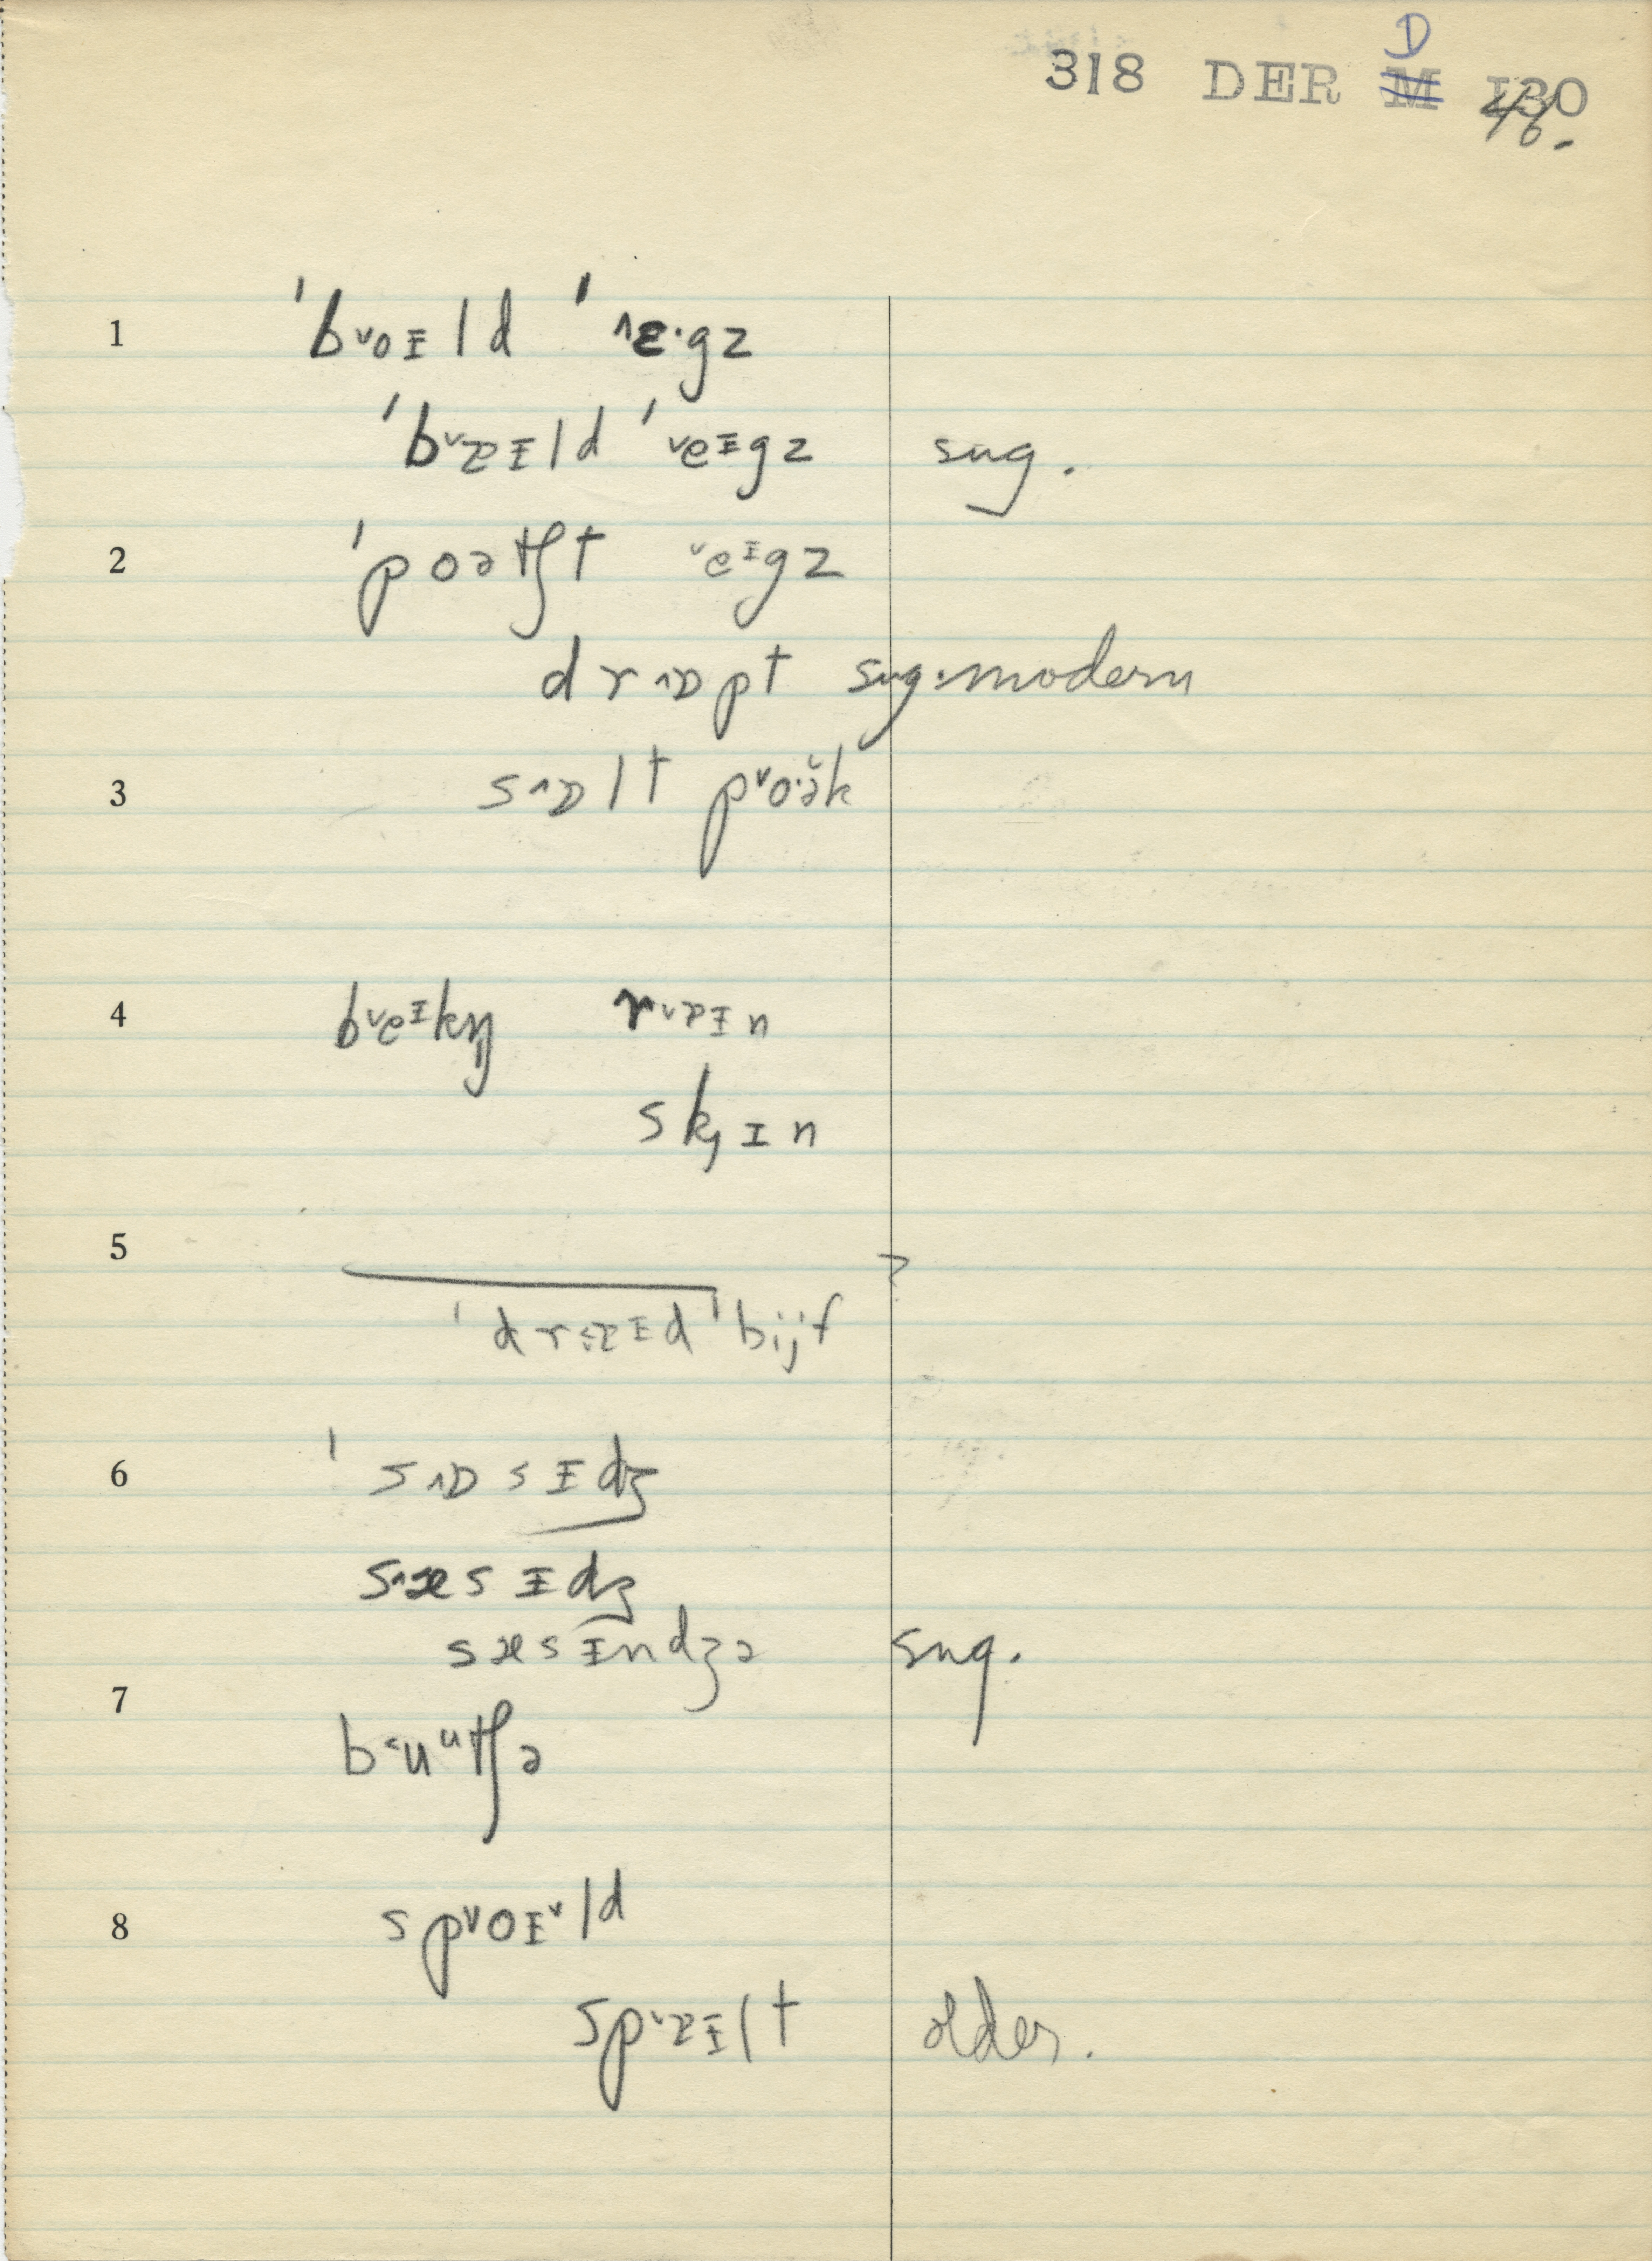 D
318 DER M 130
46.
1 ˈb˅oɪld ˈ˄ɛ·gz
ˈb˅ɒɪld ˈ˅eᶦgz sug.
2 ˈpoətʃt ˅eᶦgz
dr˄ɒpt sug. modern
3 s˄ɒlt p˅o·ə̆k
4 b˅eᶦkŋ̍ r˅ɒɪn
skɪn
5 ?
ˈdr˂ɒɪd ˈbijf
6 ˈs˄ɒsɪdʒ
s˄æsɪdʒ
sæsɪndʒə sug.
7 b˂uᵘtʃə
8 sp˅oɪ˅ld
sp˅ɒɪlt older.